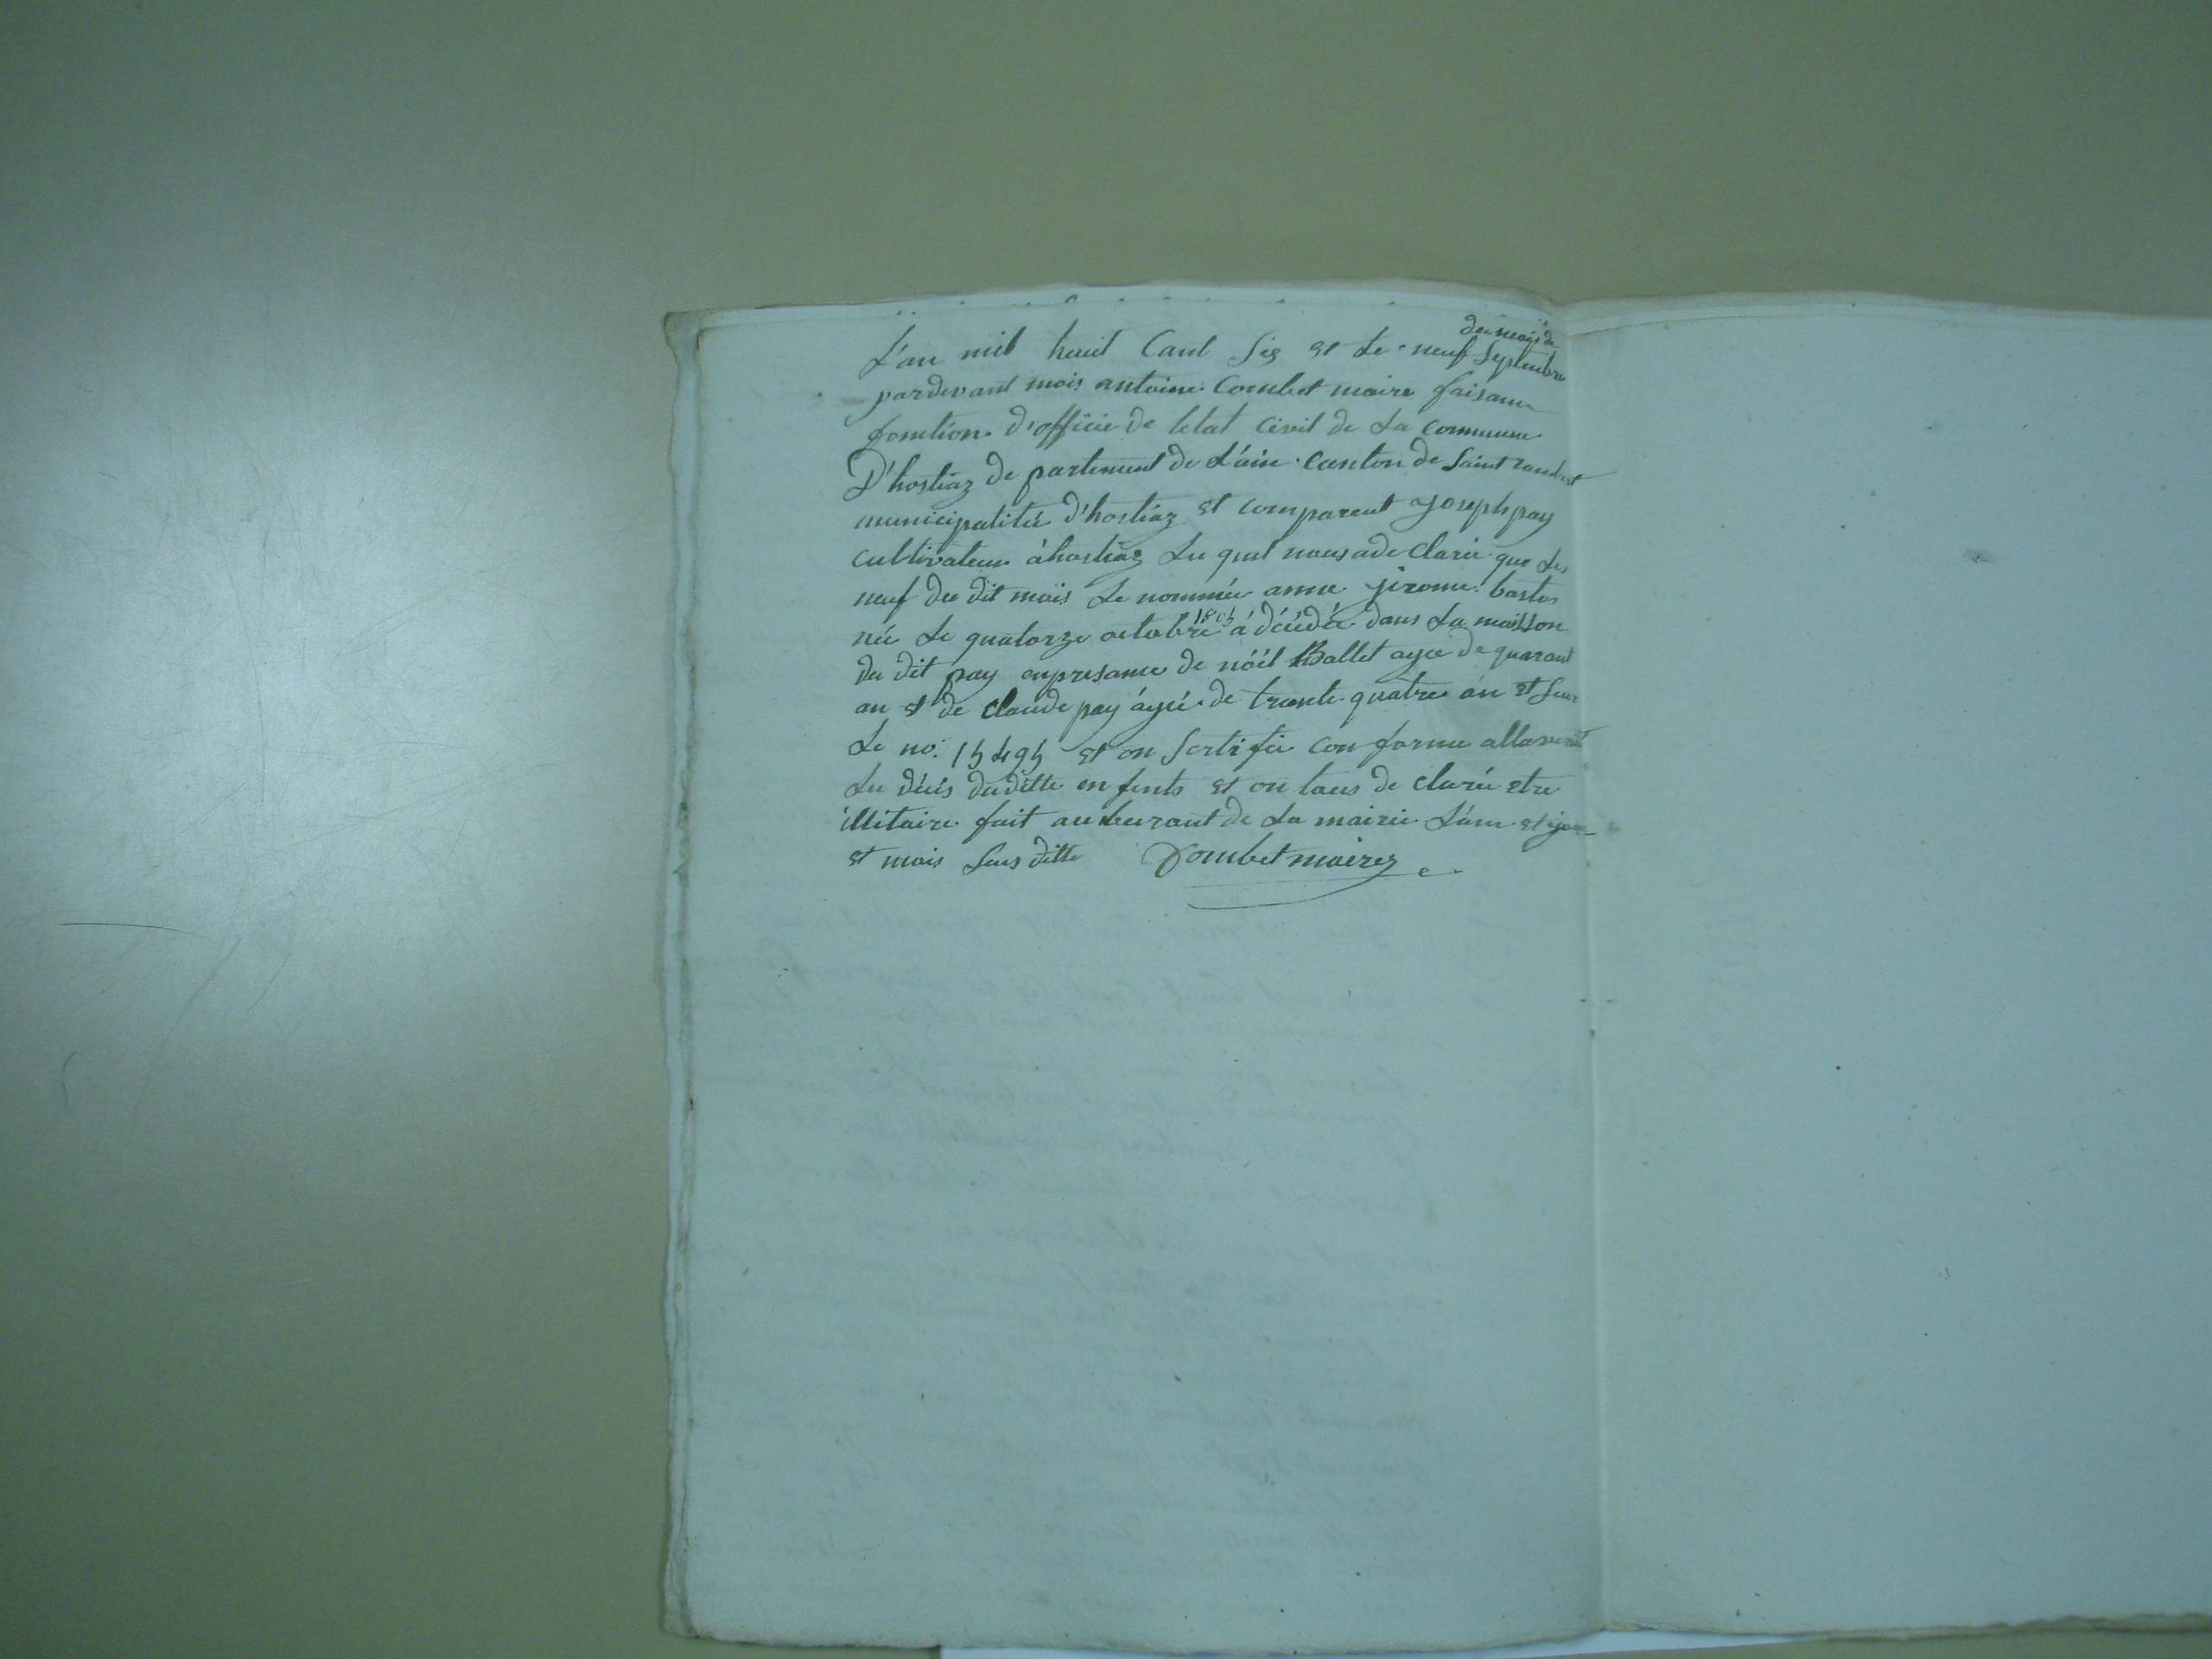 L'an mil huit Cant Six et Le neuf du mois de Septembre
pardevant mois antoine Combet maire faisant
fonction d'officie de letat Civil de La Commune
D'hostiaz de partement de L'ain Canton de Saint rambert
municipalitée d'hostiaz et comparent joseph pay
Cultivateur á hostiaz Le quel nous a de Clarée que Le
neuf du dit mois Le nommée anne jirome bastos
née Le quatorze octobre 1805 á décédée dans La maisson
du dit pay enpresance de nöél Ballet agee de quarant
an et de Claude pay ágée de trante quatre an et Sous
Le no. 15495 et on Sertifie Con forme
Le décés du ditte en fents et on tous de Clarée etre
illitaire fait au burant de La mairie L'ann et jour
et mois Sus ditte Combet maire